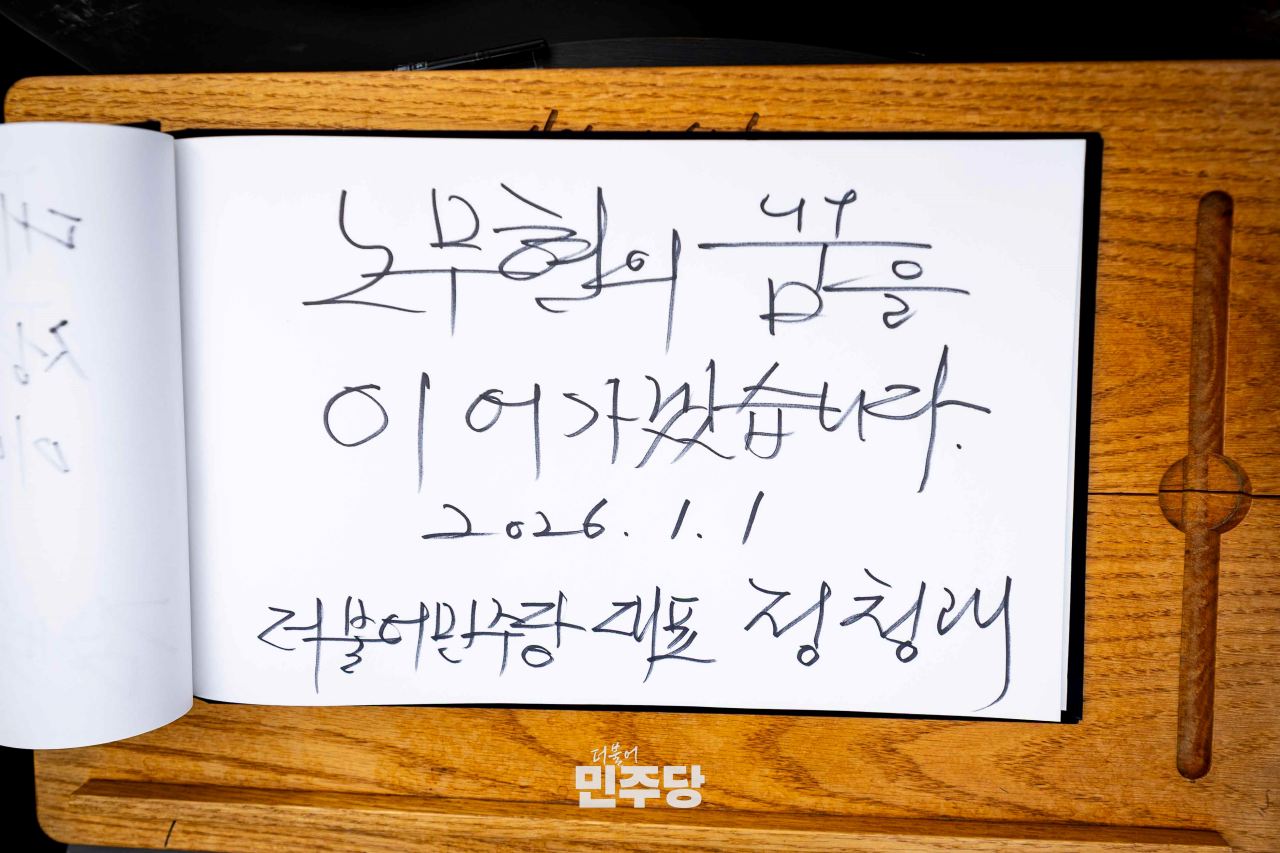 노무현의 꿈을
이어가겠습니다.
2026. 1. 1
더불어민주당 대표 정청래
더불어
민주당